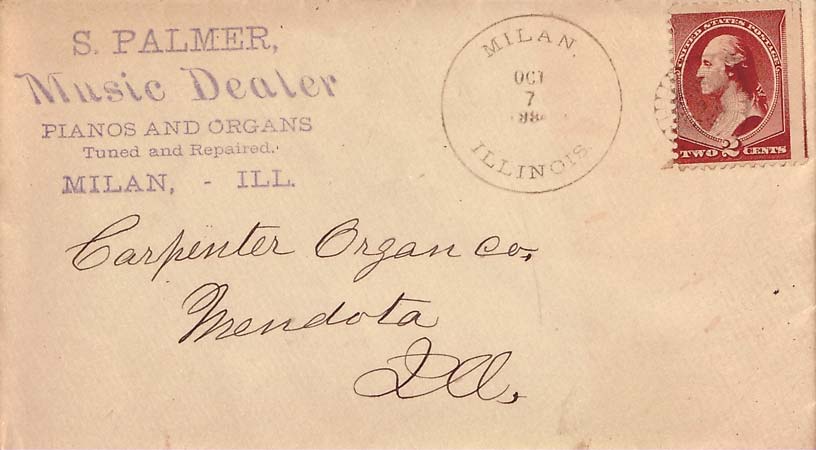 S. PALMER,
Music Dealer
PIANOS AND ORGANS
Tuned and Repaired.
MILAN, - ILL.
MILAN.
OCT
7
ILLINOIS.
UNITED STATES POSTAGE
TWO 2 CENTS
Carpenter Organ Co,
Mendota
Ill,